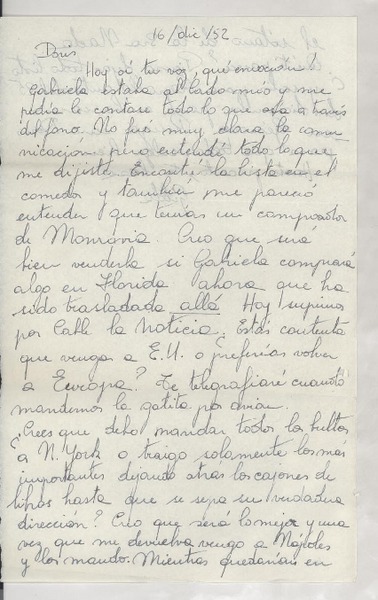 16/dic/52
Doris
Hoy oí tu voz, qué emoción!
Gabriela estaba al lado mío y me
pedía le contase todo lo que oía a través
del fono. No fué muy clara la comu-
nicación pero entendí todo lo que
me dijiste. Encontré la lista en el
comedor y también me pareció
entender que tenías un comprador
de Monrovia. Creo que será
bien venderla si Gabriela comprará
algo en Florida ahora que ha
sido trasladada allá. Hoy supimos
por Cable la noticia. Estás contenta
que vengas a E.U. o preferías volver
a Europa? Te telegrafiaré cuando
mandemos la gatita por avión.
¿Crees que debo mandar todos los bultos
a N. York o traigo solamente los más
importantes dejando atrás los cajones de
libros hasta que se sepa su verdadera
dirección? Creo que será lo mejor y una
vez que me devuelva vengo a Nápoles
y los mando. Mientras quedarían en